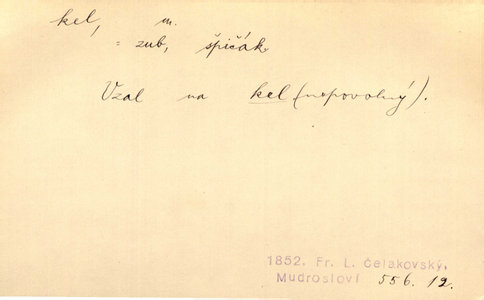 kel, m.
= zub, špičák
Vzal na kel (nepovolný).
1852. Fr. L. Čelakovský,
Mudrosloví 556. 12.